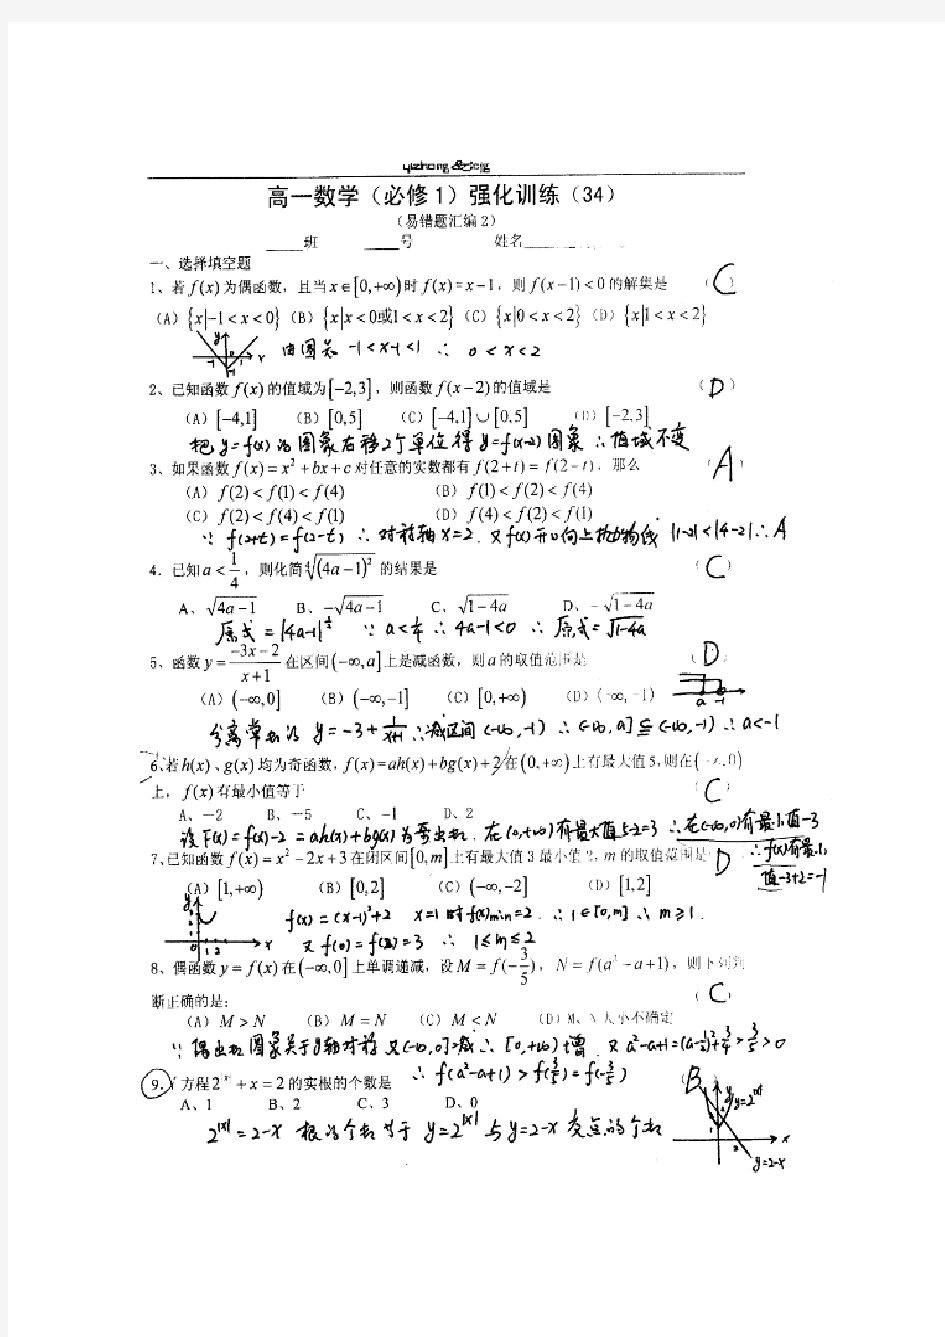 yizhong
高一数学（必修1）强化训练（34）
（易错题汇编2）
____班 ____号 姓名________
一、选择填空题
1、若f(x)为偶函数，且当x∈[0,+∞)时f(x)=x−1，则f(x−1)<0的解集是 （C）
（A）{x|−1<x<0}（B）{x|x<0或1<x<2}（C）{x|0<x<2}（D）{x|1<x<2}
由图知 -1<x-1<1 ∴ 0<x<2
2、已知函数f(x)的值域为[−2,3]，则函数f(x−2)的值域是 （D）
（A）[−4,1] （B）[0,5] （C）[−4,1]∪[0,5] （D）[−2,3]
把y=f(x)的图象右移2个单位得y=f(x-2)图象∴值域不变
3、如果函数f(x)=x²+bx+c对任意的实数都有f(2+t)=f(2−t)，那么 （A）
（A）f(2)<f(1)<f(4) （B）f(1)<f(2)<f(4)
（C）f(2)<f(4)<f(1) （D）f(4)<f(2)<f(1)
∵ f(2+t)=f(2-t) ∴ 对称轴x=2. 又f(x)开口向上抛物线 |1-2|<|4-2| ∴A
4．已知a<1/4，则化简⁴√(4a−1)²的结果是 （C）
A、√4a−1 B、−√4a−1 C、√1−4a D、−√1−4a
原式=|4a-1|^½ ∵ a<¼ ∴ 4a-1<0 ∴ 原式=√1-4a
5、函数y=(−3x−2)/(x+1)在区间(−∞,a]上是减函数，则a的取值范围是 （D）
（A）(−∞,0] （B）(−∞,−1] （C）[0,+∞) （D）(−∞,−1)
a -1
分离常数的 y=-3+1/(x+1) ∴减区间(-∞,-1) ∴(-∞,a]⊆(-∞,-1) ∴a<-1
6、若h(x)、g(x)均为奇函数，f(x)=ah(x)+bg(x)+2在(0,+∞)上有最大值5，则在(−∞,0)
上，f(x)有最小值等于 （C）
A、−2 B、−5 C、−1 D、2
设F(x)=f(x)-2=ah(x)+bg(x)为奇函数. 在(0,+∞)有最大值5-2=3 ∴在(-∞,0)有最小值-3
∴f(x)有最小
值-3+2=-1
7、已知函数f(x)=x²−2x+3在闭区间[0,m]上有最大值3最小值2，m的取值范围是 D
（A）[1,+∞) （B）[0,2] （C）(−∞,−2] （D）[1,2]
f(x)=(x-1)²+2 x=1时f(x)min=2. ∴1∈[0,m] ∴m≥1.
又f(0)=f(2)=3 ∴ 1≤m≤2
8、偶函数y=f(x)在(−∞,0]上单调递减，设M=f(−3/5)，N=f(a²−a+1)，则下列判
断正确的是： （C）
（A）M>N （B）M=N （C）M<N （D）M、N大小不确定
∵偶函数图象关于y轴对称 又(-∞,0]减∴[0,+∞)增 又a²-a+1=(a-½)²+¾>3/5>0
∴f(a²-a+1)>f(3/5)=f(-3/5)
9、方程2^|x|+x=2的实根的个数是 （B
A、1 B、2 C、3 D、0
2^|x|=2-x 根的个数等于 y=2^|x|与y=2-x交点的个数
y=2^|x|
y=2-x